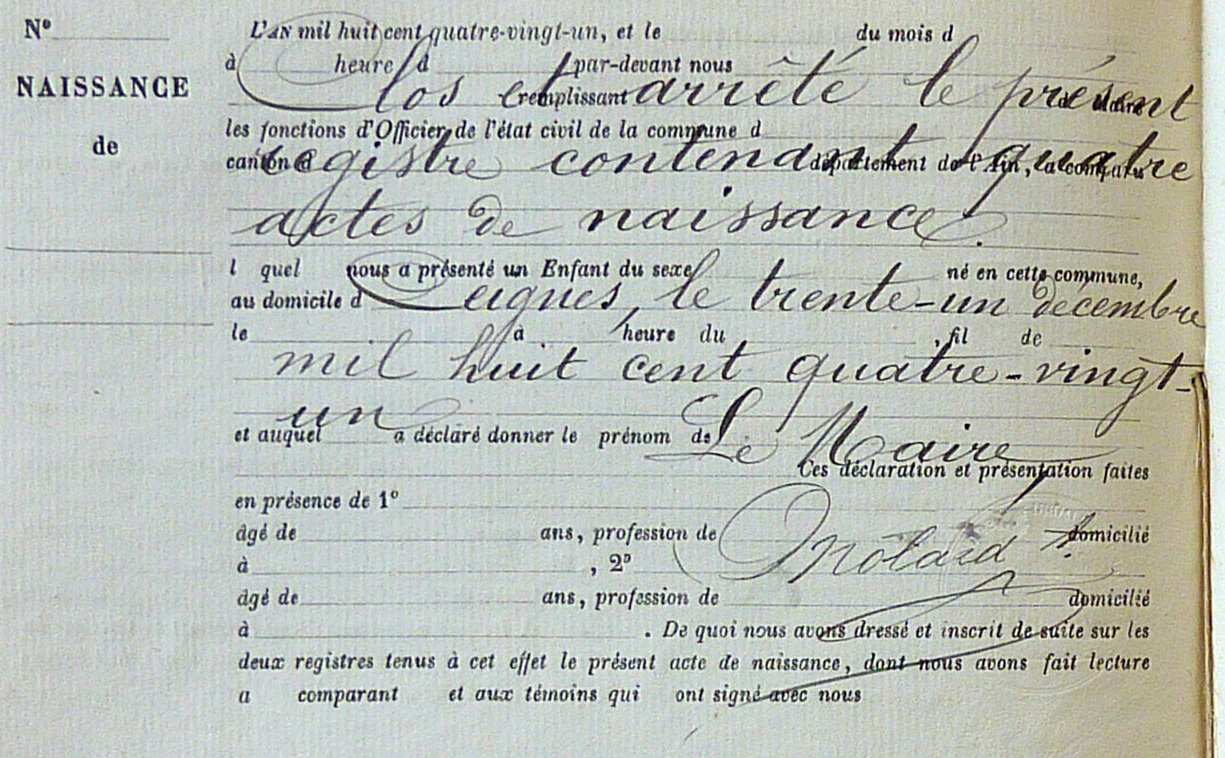 N°
L'AN mil huit cent quatre-vingt-un, et le du mois d
à heure d par-devant nous
NAISSANCE
Clos et arrêté le présent
remplissant
les fonctions d'Officier de l'état civil de la commune d
de
registre contenant quatre
canton d département de l'Ain, a comparu
actes de naissance.
l quel nous a présenté un Enfant du sexe né en cette commune,
Ceignes, le trente-un décembre
au domicile d
le à heure du , fil de
mil huit cent quatre-vingt-
un
et auquel a déclaré donner le prénom de
Le Maire
Ces déclaration et présentation faites
en présence de 1°
âgé de ans, profession de domicilié
Molard
à , 2°
âgé de ans, profession de domicilié
à . De quoi nous avons dressé et inscrit de suite sur les
deux registres tenus à cet effet le présent acte de naissance, dont nous avons fait lecture
a comparant et aux témoins qui ont signé avec nous